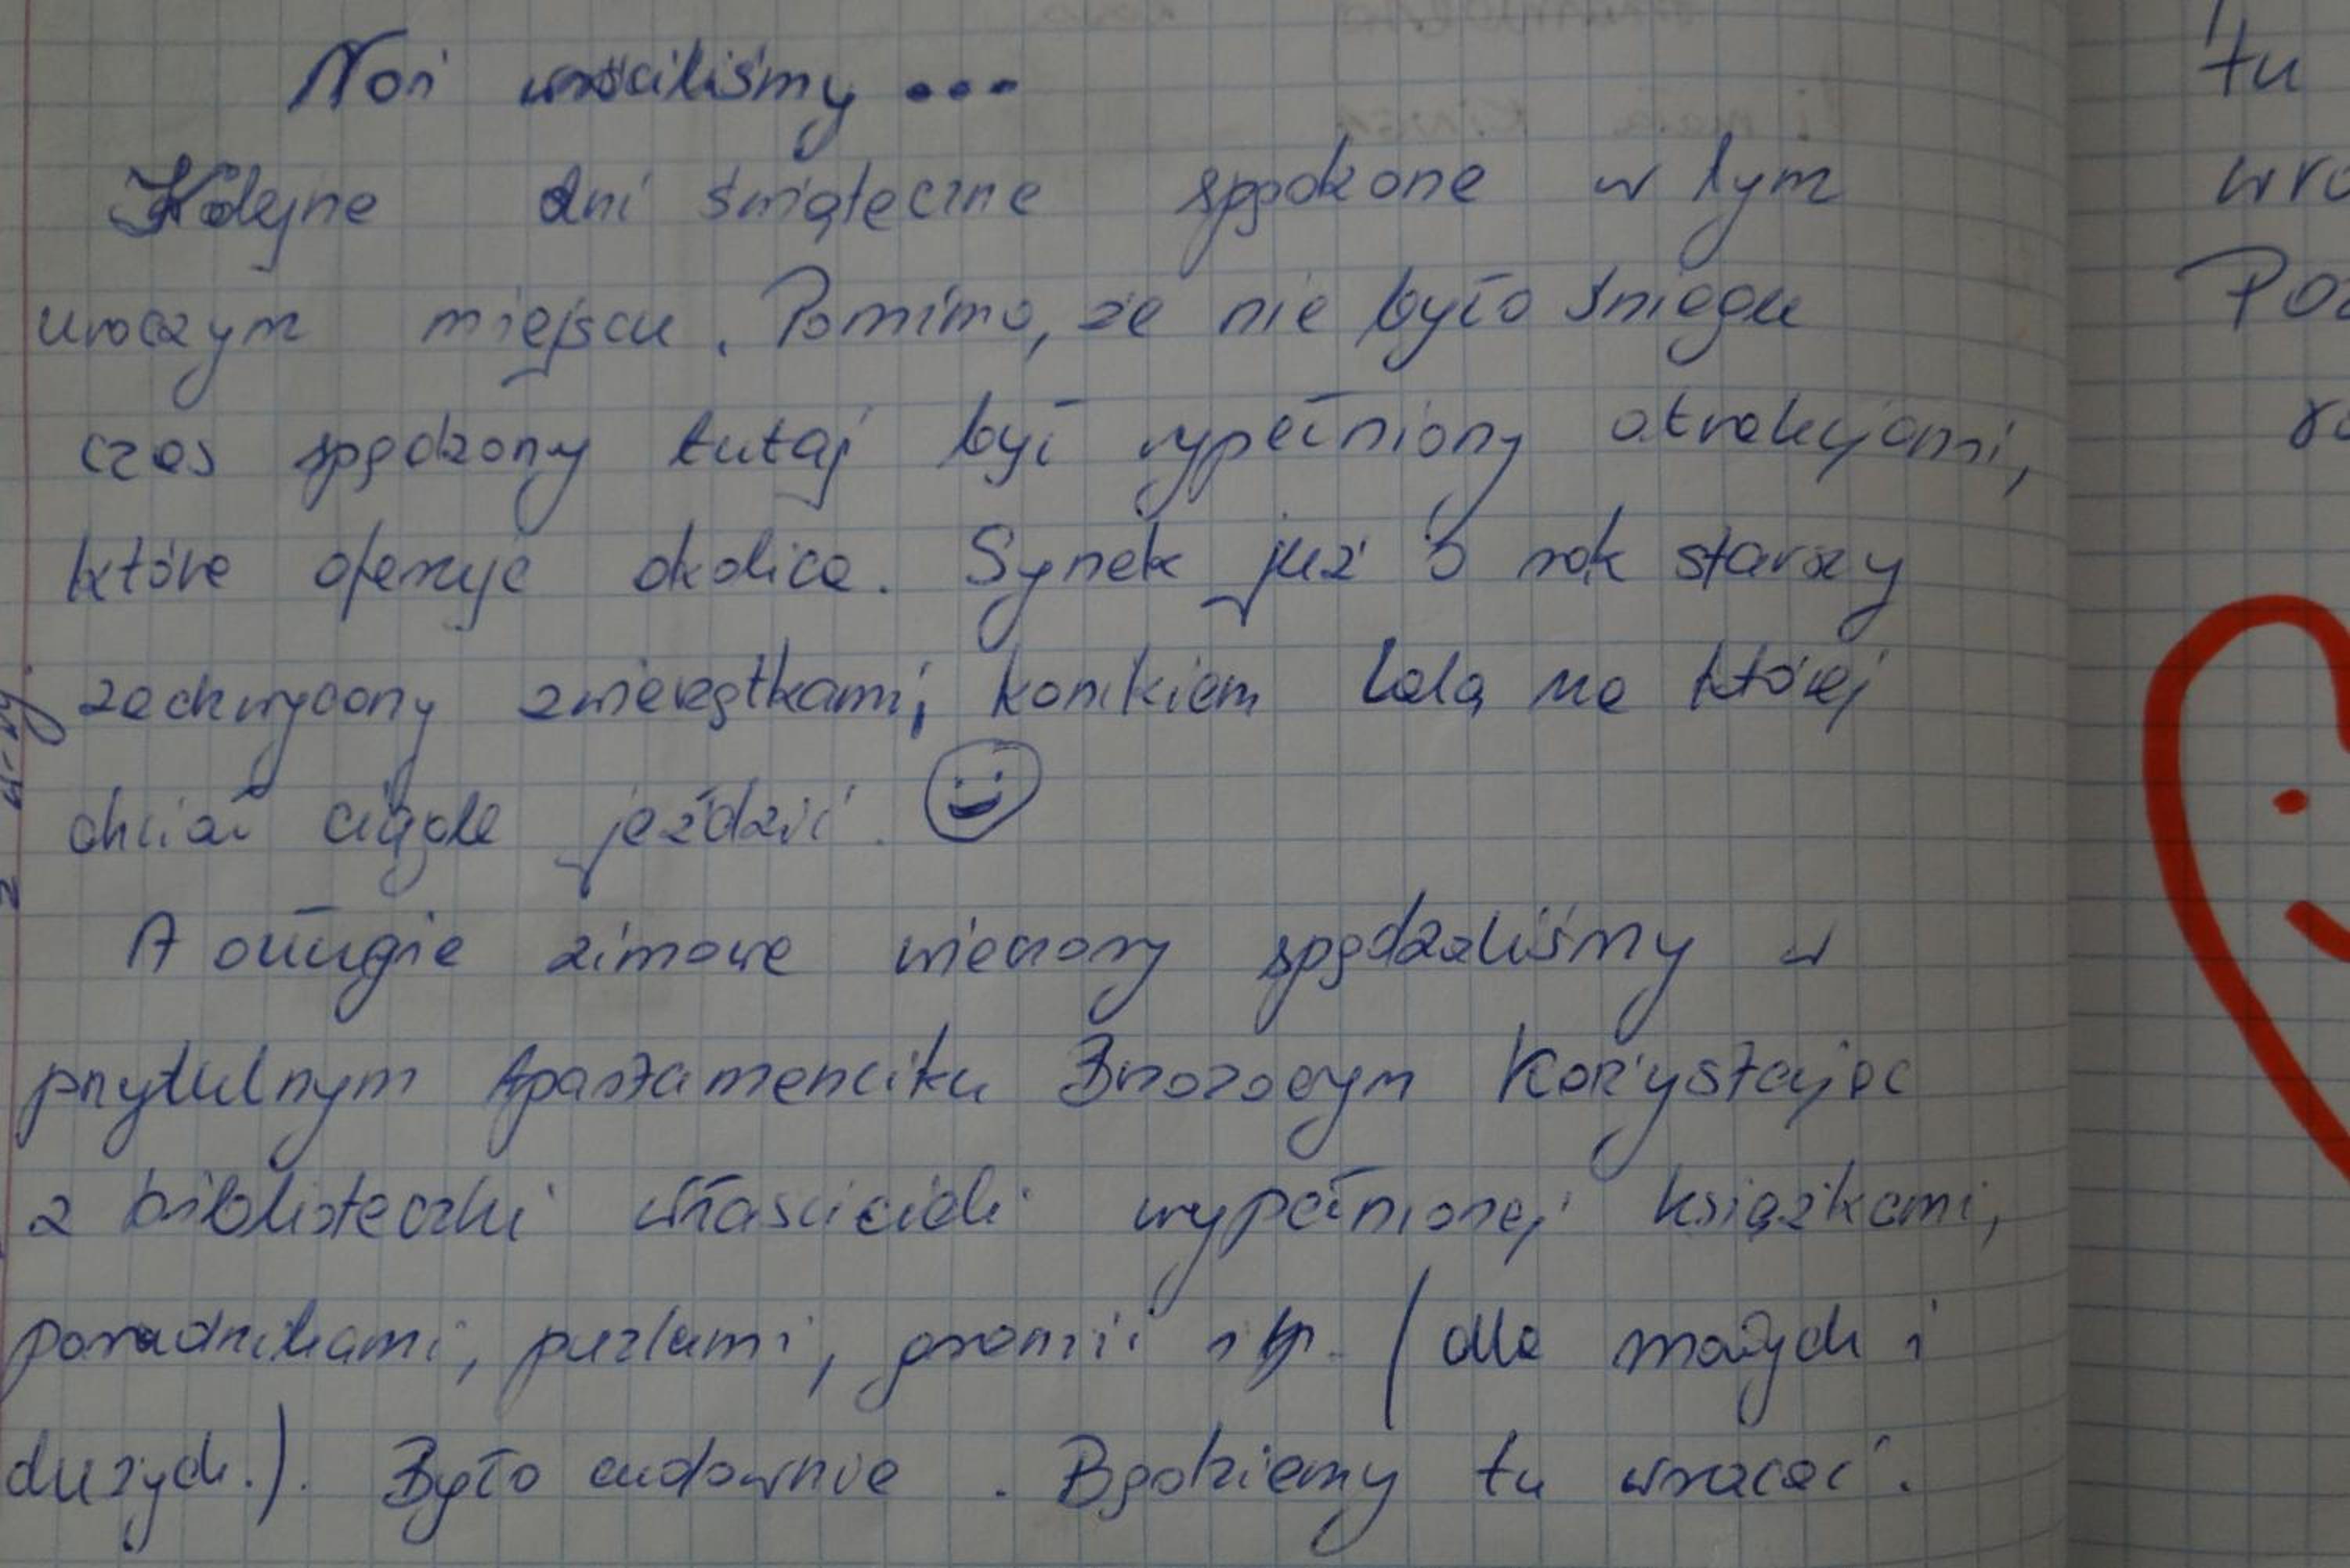 Noi wróciliśmy...
Kolejne dni świąteczne spędzone w tym
uroczym miejscu. Pomimo, że nie było śniegu
czas spędzony tutaj był wypełniony atrakcjami,
które oferuje okolica. Synek już o rok starszy
zachwycony zwierzątkami, konikiem Lolą na której
chciał ciągle jeździć.
A długie zimowe wieczory spędzaliśmy w
przytulnym Apartamenciku Brzozowym korzystając
z biblioteczki właścicieli wypełnionej książkami,
poradnikami, puzlami, grami itp. (dla małych i
dużych.). Było cudownie. Będziemy tu wracać.
tu